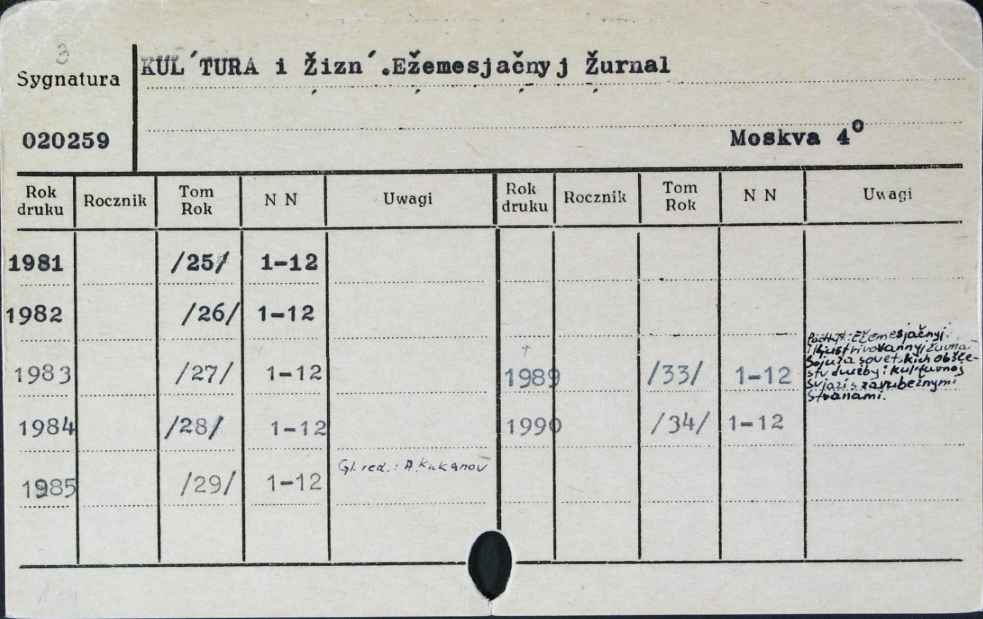 3
Sygnatura
KUL´TURA i Žizn´.Ežemesjačnyj Žurnal
020259
Moskva 4o
Rok druku Rocznik Tom Rok N N Uwagi Rok druku Rocznik Tom Rok N N Uwagi
1981 /25/ 1-12
1982 /26/ 1-12
1983 /27/ 1-12 1989 /33/ 1-12
Ežemesjačnyj
illjustrirovannyj žurnal
Sojuza sovetskich obšče-
stv družby i kul'turnoj
svjazi s zarubežnymi
stranami.
1984 /28/ 1-12 1990 /34/ 1-12
1985 /29/ 1-12 Gl. red.: A. Kukanov